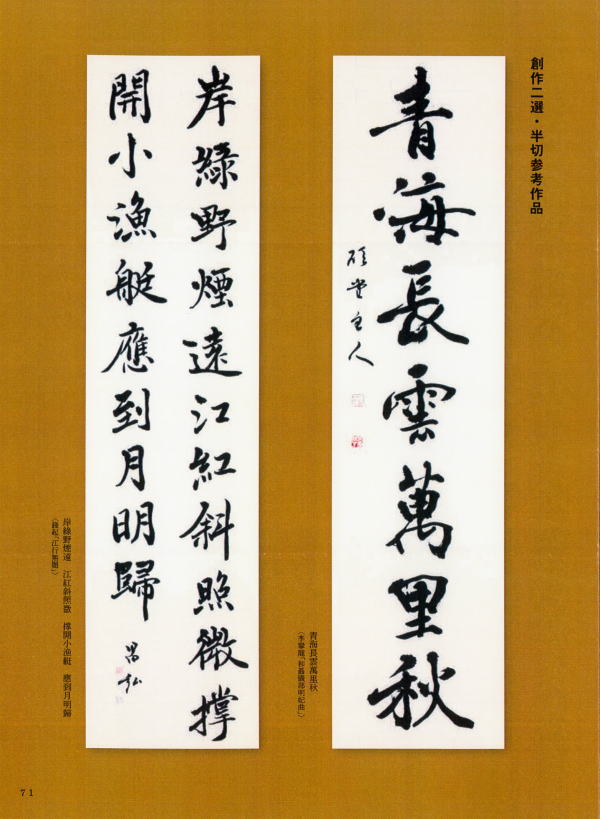 創作二選・半切参考作品
青海長雲萬里秋
青海長雲萬里秋
〈李攀龍「和聶儀部明妃曲」〉
岸綠野煙遠江紅斜照微撑
開小漁艇應到月明歸
昌弘
岸綠野煙遠　江紅斜照微　撑開小漁艇　應到月明歸
〈錢起「江行無題」〉
71